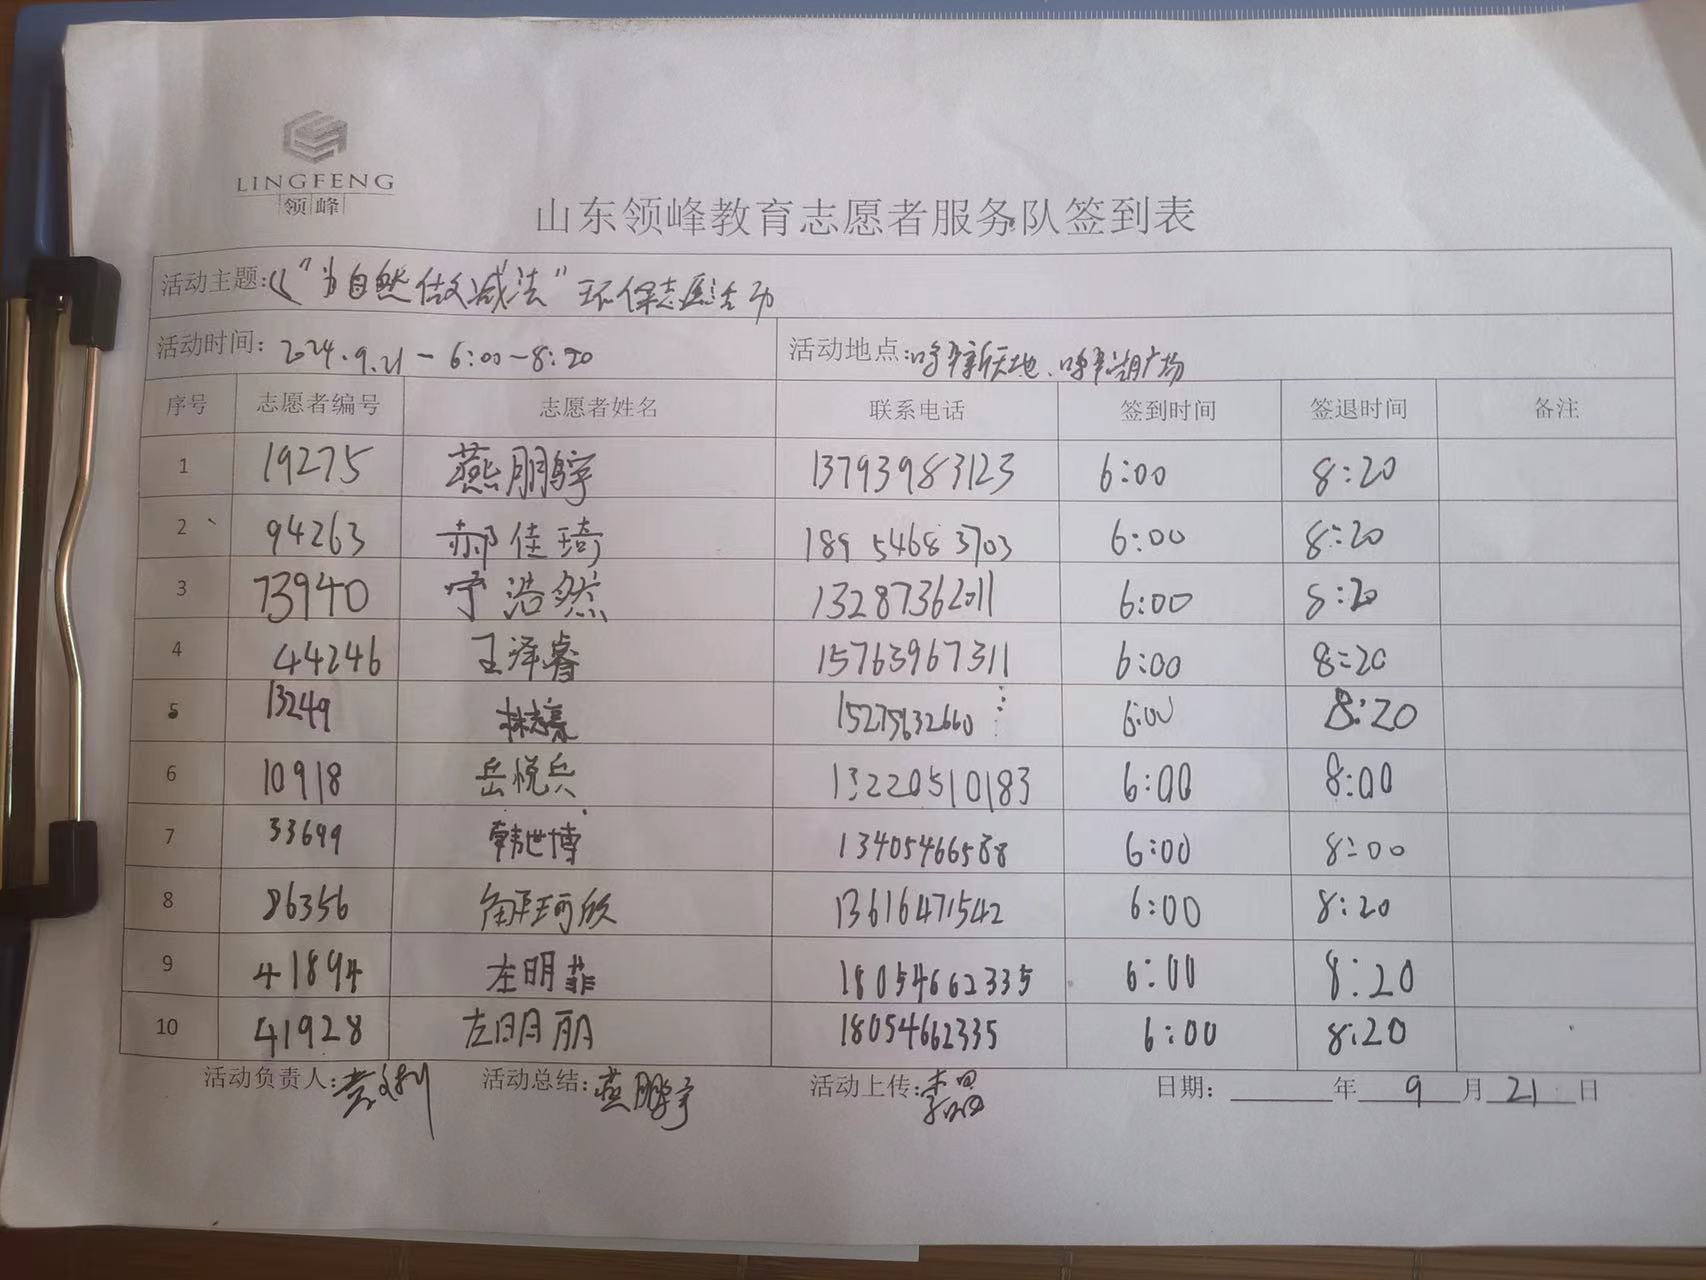 LINGFENG
领峰
山东领峰教育志愿者服务队签到表
活动主题:《"为自然做减法"环保志愿活动
活动时间: 2024.9.21-6:00-8:20 活动地点: 新天地、广场
序号 志愿者编号 志愿者姓名 联系电话 签到时间 签退时间 备注
1 19275 燕鹏宇 13793983123 6:00 8:20
2 94263 郝佳琦 189 5468 3703 6:00 8:20
3 73940 浩然 13287362011 6:00 8:20
4 44246 王泽睿 15763967311 6:00 8:20
5 13249 林志豪 15275632660 6:00 8:20
6 10918 岳悦兵 13220510183 6:00 8:00
7 33699 韩世博 13405466588 6:00 8:00
8 86356 解珂欣 13616471542 6:00 8:20
9 41894 左明菲 18054662335 6:00 8:20
10 41928 左明丽 18054662335 6:00 8:20
活动负责人: 活动总结:燕鹏宇 活动上传: 日期: 年 9 月 21 日